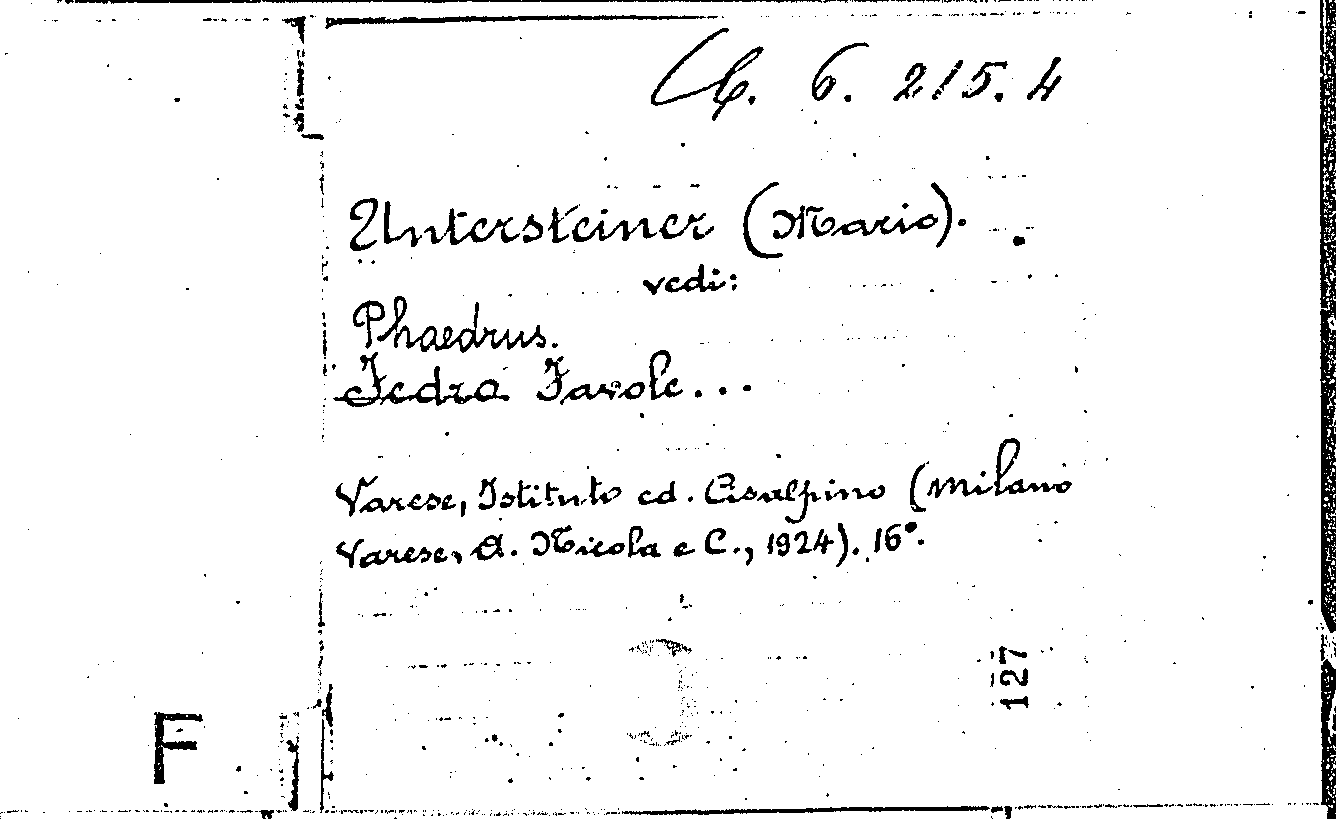 6. 215. 4
Untersteiner (Mario).
vedi:
Phaedrus.
Fedro Favole...
Varese, Istituto ed. Cisalpino (Milano
Varese, A. Nicola e C., 1924). 16°.
127
F